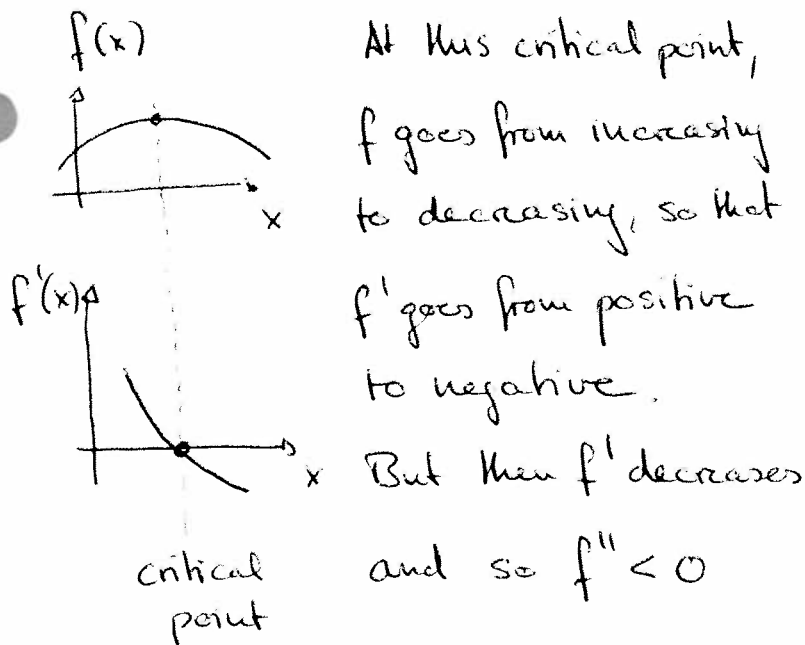 f(x)
x
f'(x)
x
critical
point
At this critical point,
f goes from increasing
to decreasing, so that
f' goes from positive
to negative.
But then f' decreases
and so f'' < 0